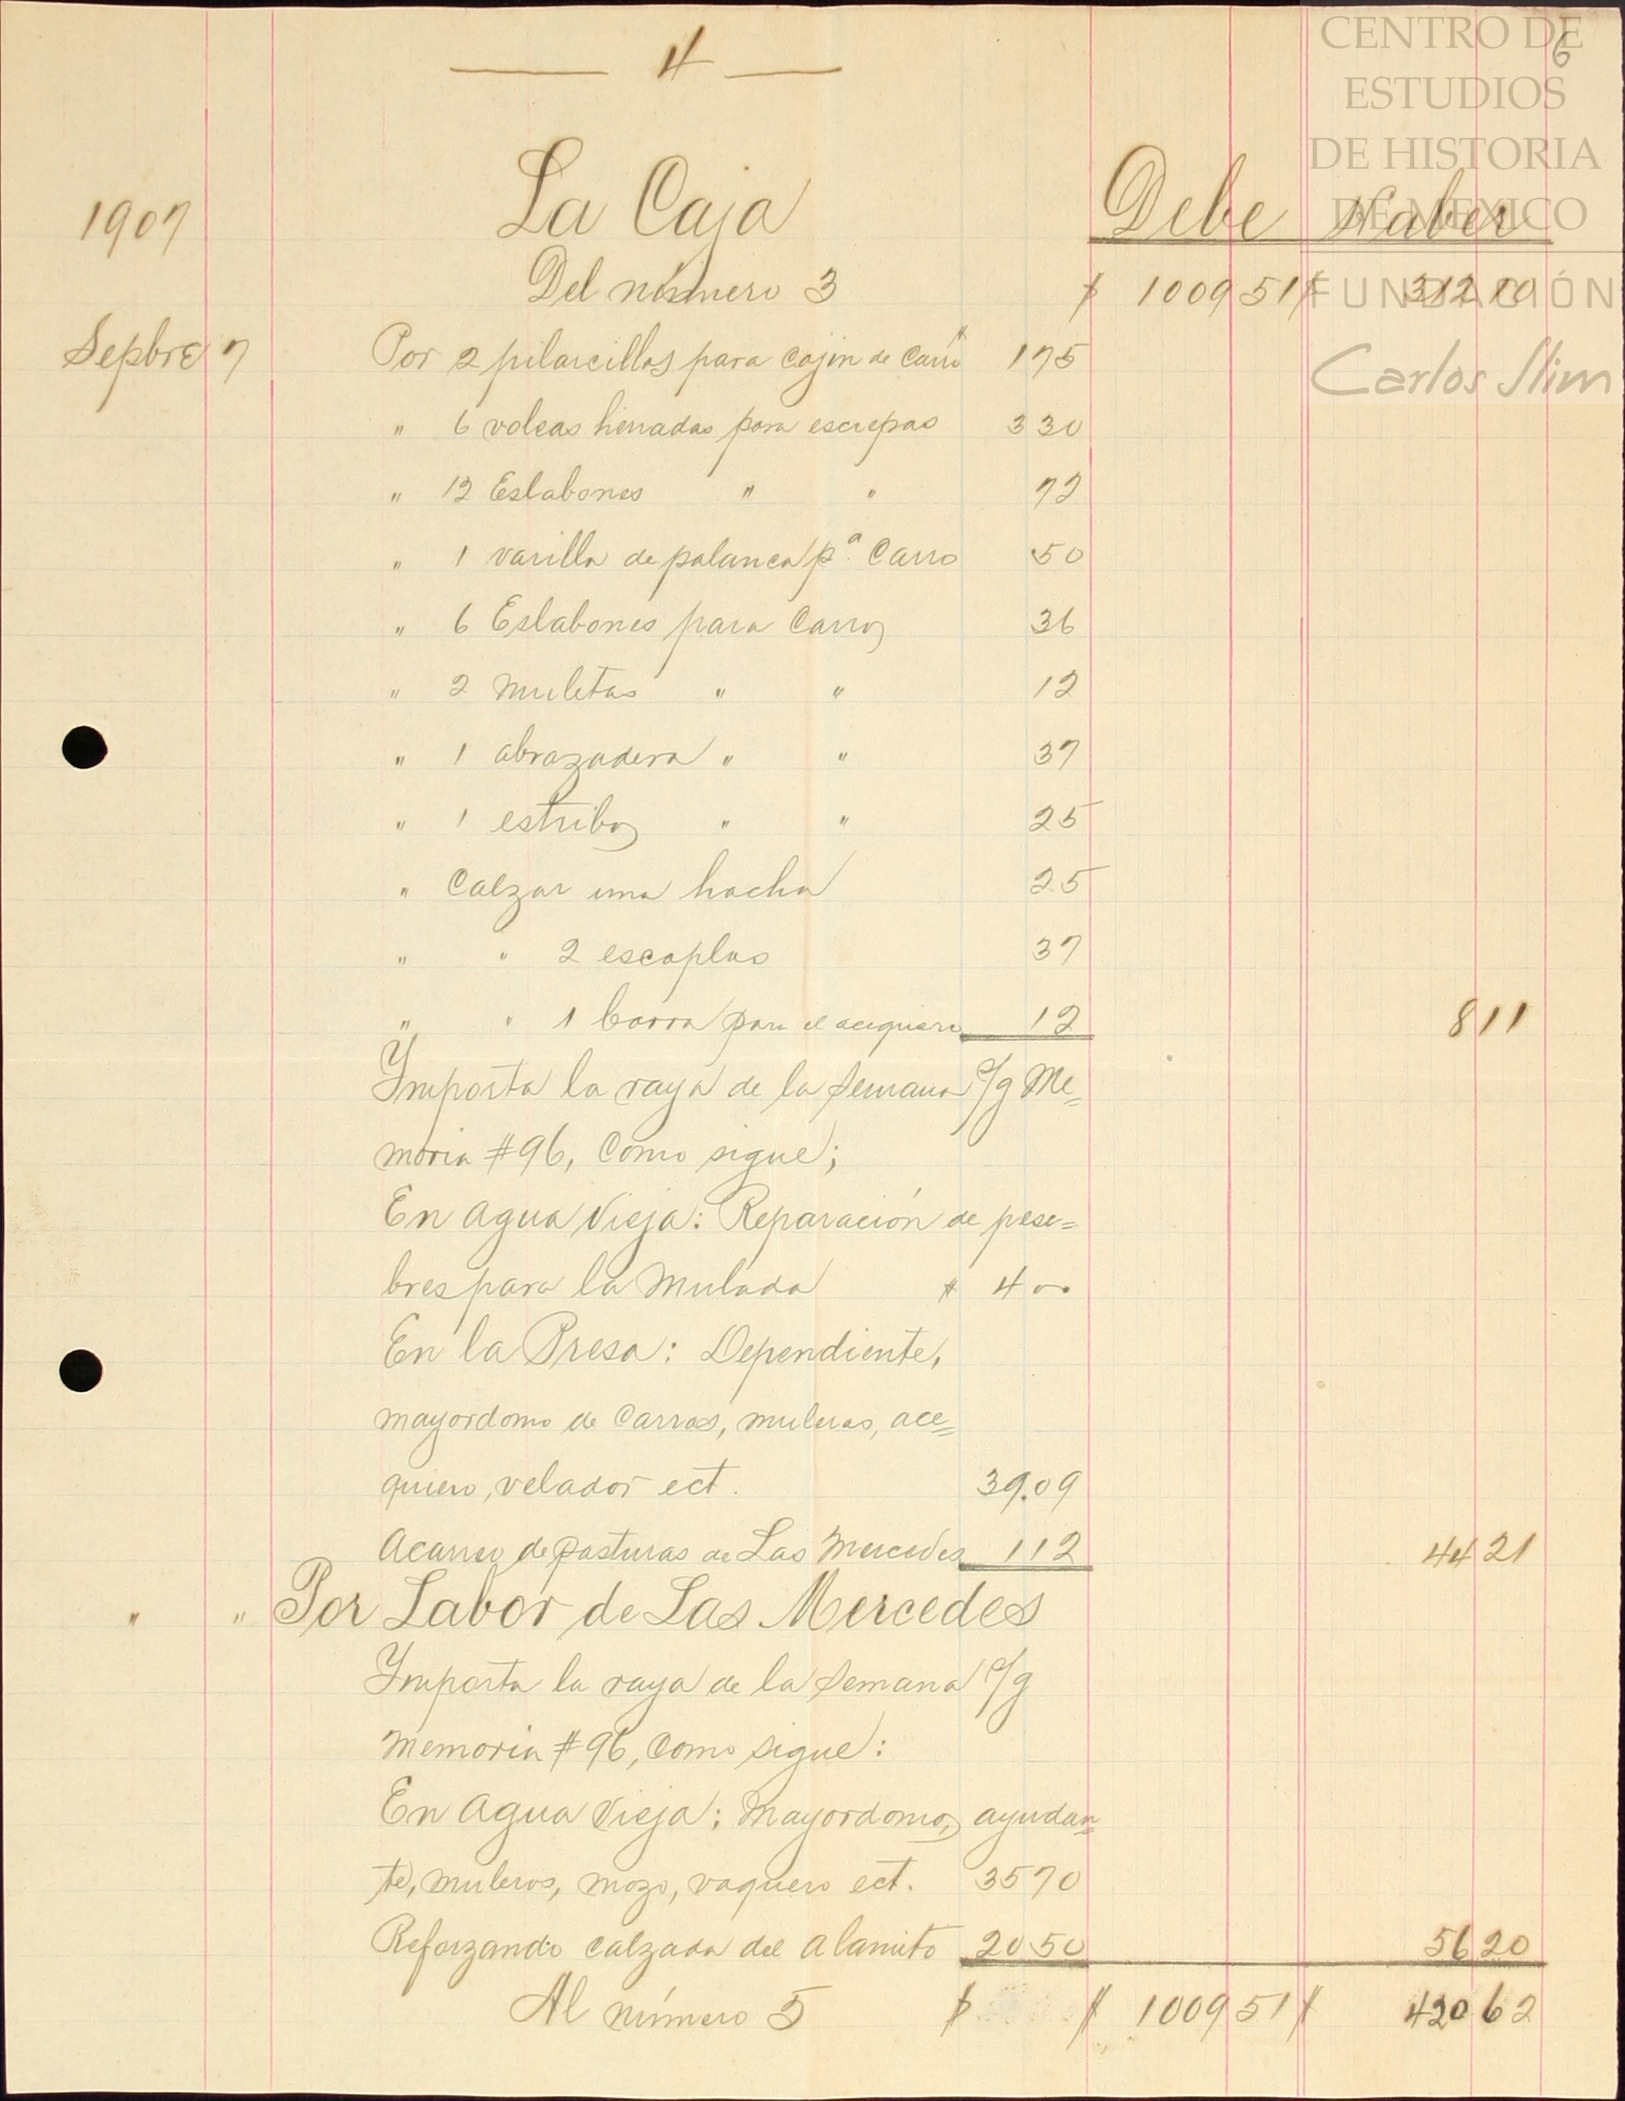 — 4 —
6
CENTRO DE
ESTUDIOS
DE HISTORIA
DE MEXICO
FUNDACIÓN
Carlos Slim
1907 La Caja Debe Haber
Del número 3 $ 1009 51 $ 312 10
Sepbre 7 Por 2 pilarcillos para cojin de Carro $ 1 75
" 6 voleas herradas para escrepas 3 30
" 12 Eslabones " " 72
" 1 varilla de palanca pª. Carro 50
" 6 Eslabones para Carro 36
" 2 muletas " " 12
" 1 abrazadera " " 37
" 1 estribo " " 25
" Calzar una hacha 25
" " 2 escoplos 37
" " 1 barra para el acequiero 12 8 11
Importa la raya de la Semana s/g Me=
moria #96, Como sigue;
En Agua Vieja: Reparación de pese=
bres para la Mulada $ 4 00
En la Presa: Dependiente,
mayordomo de Carros, muleros, ace=
quiero, velador ect. 39.09
Acarreo de pasturas de Las Mercedes 1 12 44 21
" " Por Labor de Las Mercedes
Importa la raya de la Semana s/g
Memoria #96, Como sigue:
En Agua Vieja: Mayordomo, ayudan=
te, muleros, mozo, vaquero ect. 35 70
Reforzando calzada del Alamito 20 50 56 20
Al número 5 $ $ 1009 51 $ 420 62